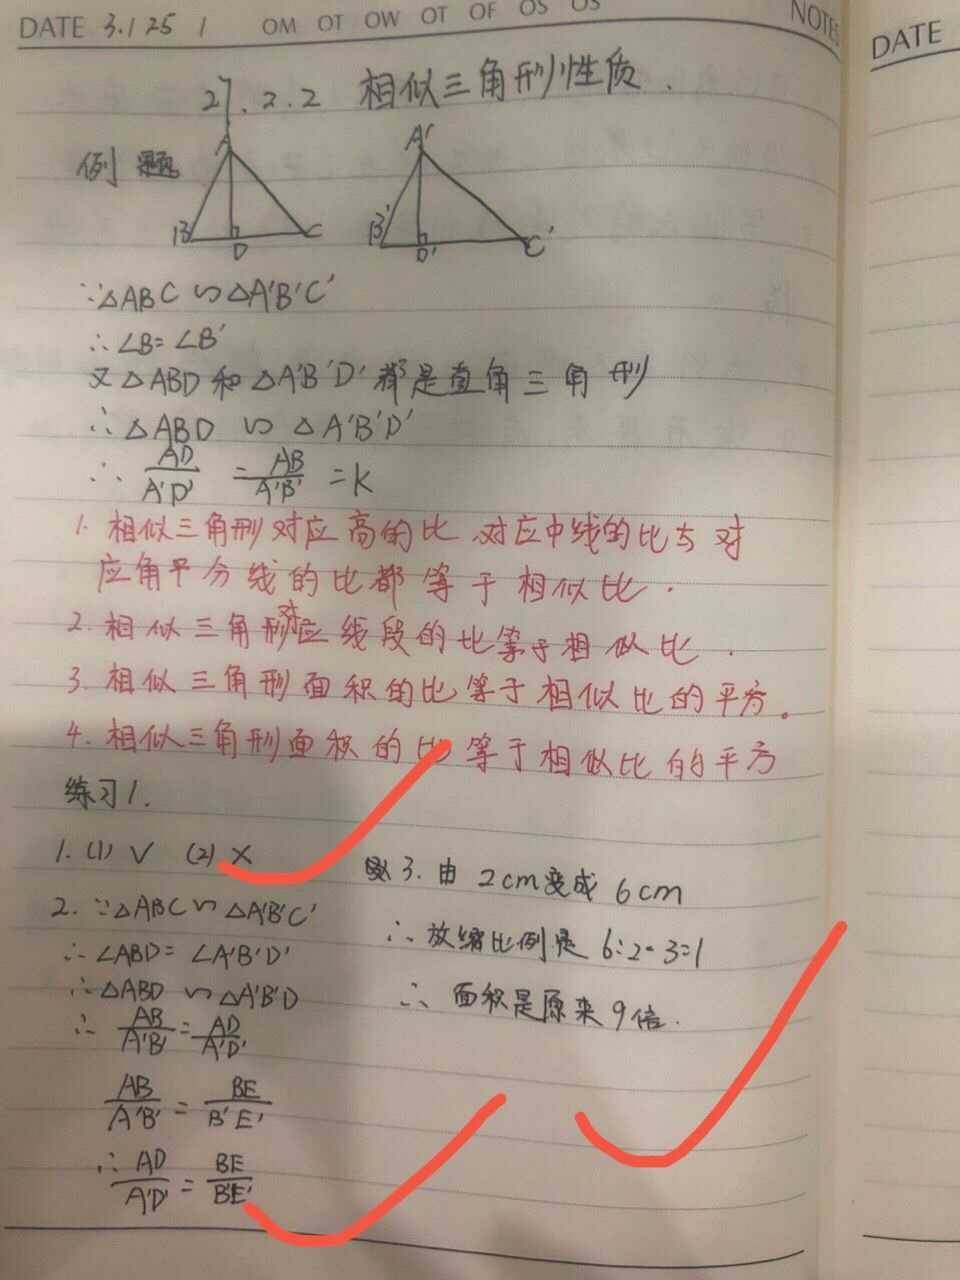 DATE 3.1 25 1 OM OT OW OT OF OS OS NOTES
DATE
27.2.2 相似三角形性质.
例题
A
B
D
C
A'
B'
D'
C'
∵△ABC∽△A'B'C'
∴∠B=∠B'
又△ABD和△A'B'D'都是直角三角形
∴△ABD∽△A'B'D'
∴ AD/A'D' = AB/A'B' = K
1. 相似三角形对应高的比.对应中线的比与对
应角平分线的比都等于相似比.
2. 相似三角形对应线段的比等于相似比.
3. 相似三角形面积的比等于相似比的平方。
4. 相似三角形面积的比等于相似比的平方
练习1.
1. (1) √ (2) ×
2. ∵△ABC∽△A'B'C'
∴∠ABD=∠A'B'D'
∴△ABD∽△A'B'D
∴ AB/A'B' = AD/A'D'
AB/A'B' = BE/B'E'
∴ AD/A'D' = BE/B'E'
3. 由2cm变成6cm
∴放缩比例是6:2=3=1
∴面积是原来9倍.